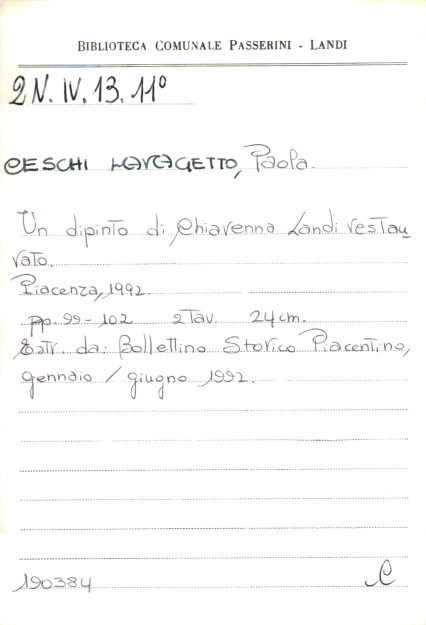 BIBLIOTECA COMUNALE PASSERINI - LANDI
2 N. IV. 13. 11º
CESCHI LAVAGETTO, Paola.
Un dipinto di Chiavenna Landi restau
rato.
Piacenza, 1992.
pp. 99-102 2 tav. 24 cm.
Estr. da: Bollettino Storico Piacentino,
gennaio / giugno 1992.
190384
C